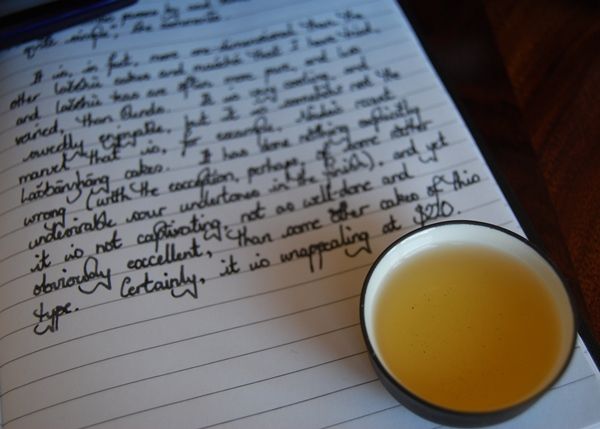 quite simple, the
It is, in fact, more one-dimensional than the
other cakes and that I have tried,
and teas are often more pure, and less
varied, than It is very cooling, and
enjoyable, but it is somewhat not the
marvel that is, for example, recent
Lǎobānzhāng cakes. It has done nothing explicitly
wrong (with the exception, perhaps, of some rather
undesirable sour undertones in the finish), and yet
it is not captivating, not as well-done and
obviously excellent, than some other cakes of this
type. Certainly, it is unappealing at $220.